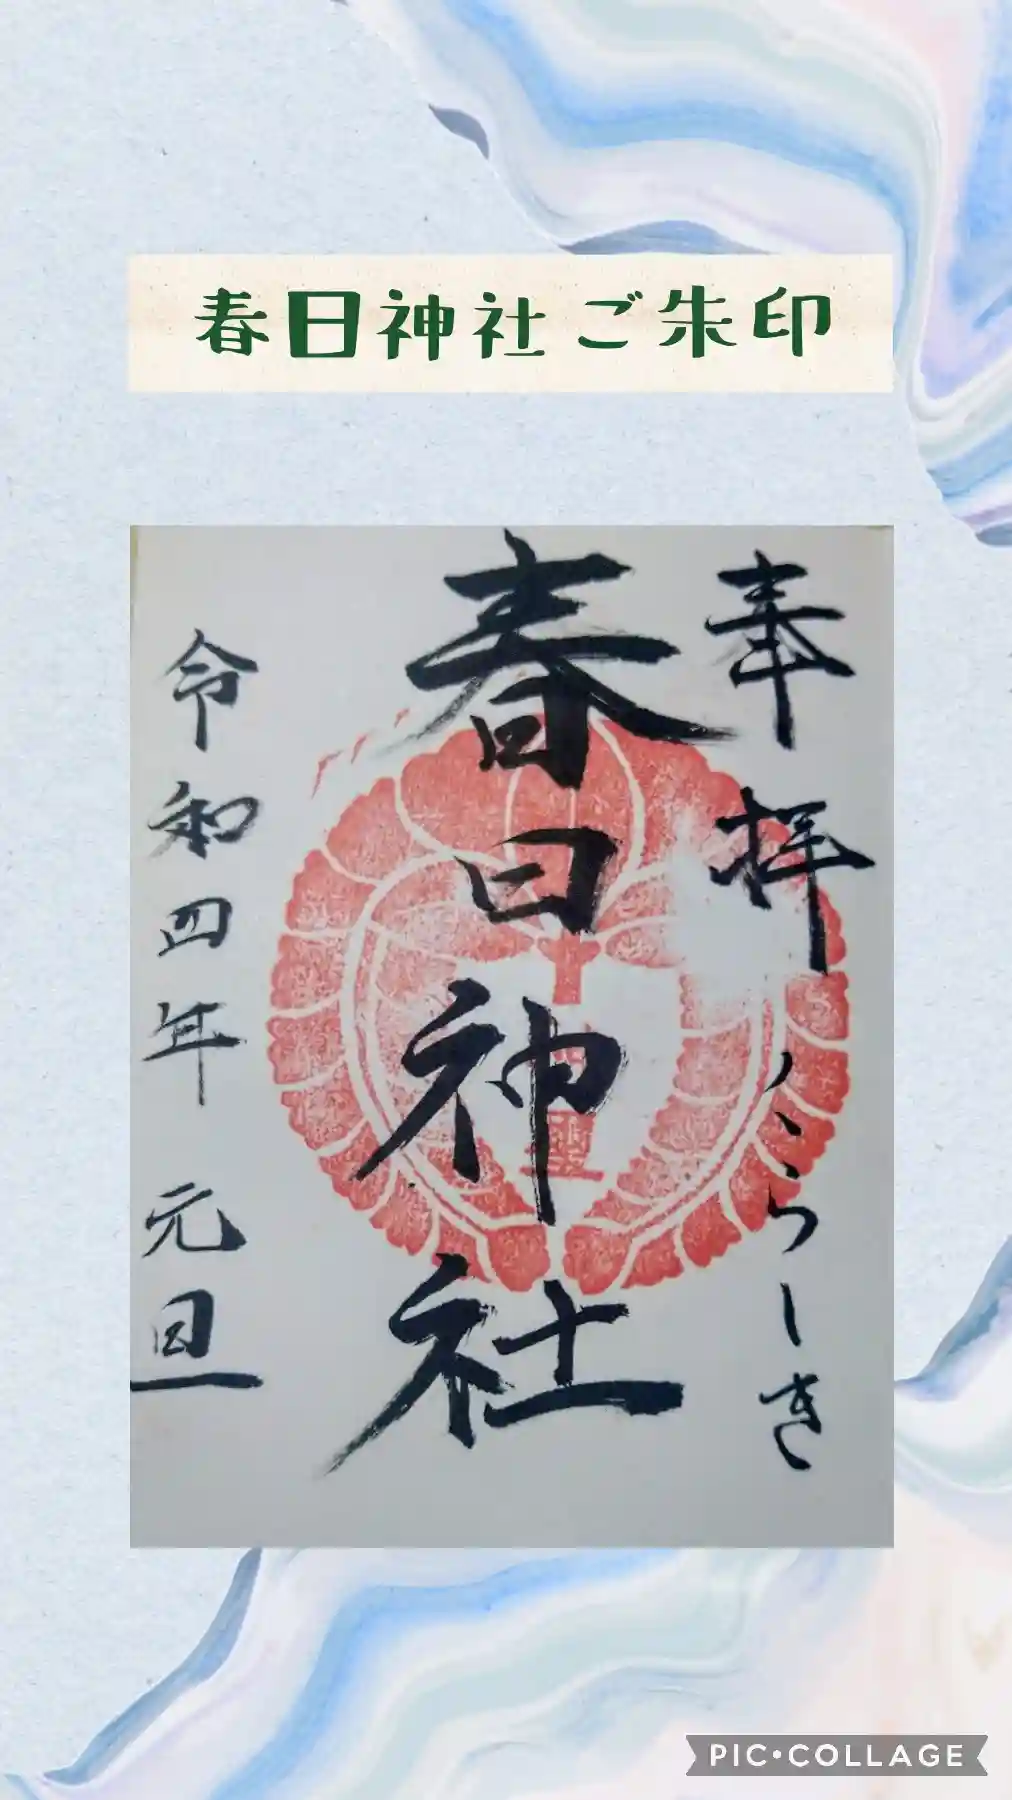 春日神社ご朱印
奉拝 くらしき
春日神社
令和四年 元旦
PIC•COLLAGE